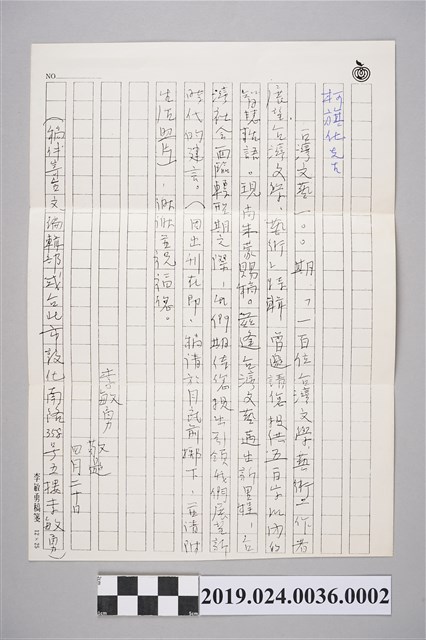 NO.
柯旗化先生
台灣文藝一〇〇期,「一百位台灣文學、藝術工作者
展望台灣文學、藝術」特輯,曾邀請您提供五百字以內的
智慧話語。現尚未蒙賜稿。茲逢台灣文藝邁出新里程,台
灣社會面臨轉型期之際,我們期待您提出引領我們展望新
時代的建言。(因出刊在即,稿請於月底前擲下,并請附
生活照片),謝謝並祝福您。
李敏勇
敬邀
四月二十日
(稿件逕寄台文編輯部或台北市敦化南路355號五樓李敏勇)
李敏勇稿箋
2019.024.0036.0002